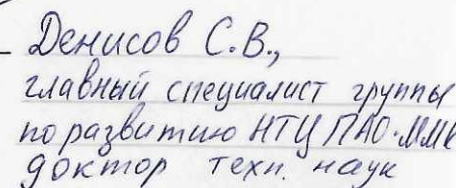 Денисов С.В.,
главный специалист группы
по развитию НТЦ ПАО "ММК
доктор техн. наук